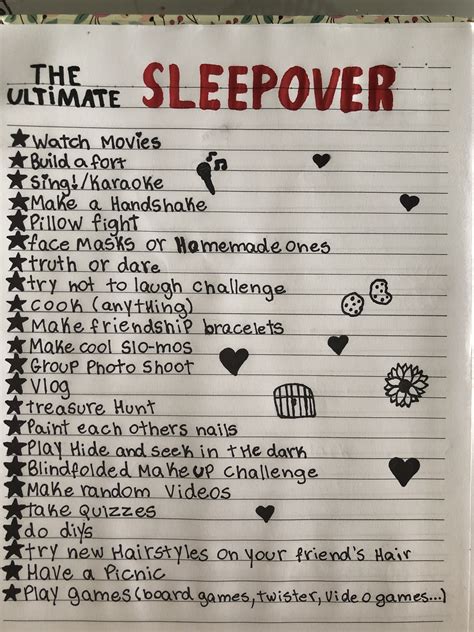 THE
ULTIMATE SLEEPOVER
★Watch Movies
★Build a fort
★Sing!/Karaoke
★Make a Handshake
★Pillow fight
★face Masks or Homemade ones
★truth or dare
★try not to laugh challenge
★cook (anything)
★Make friendship bracelets
★Make cool Slo-mos
★Group Photo Shoot
★Vlog
★treasure Hunt
★Paint each others nails
★Play Hide and seek in the dark
★Blindfolded Makeup Challenge
★Make random Videos
★take Quizzes
★do diys
★try new Hairstyles on your friend's Hair
★Have a Picnic
★Play games (board games, twister, video games...)